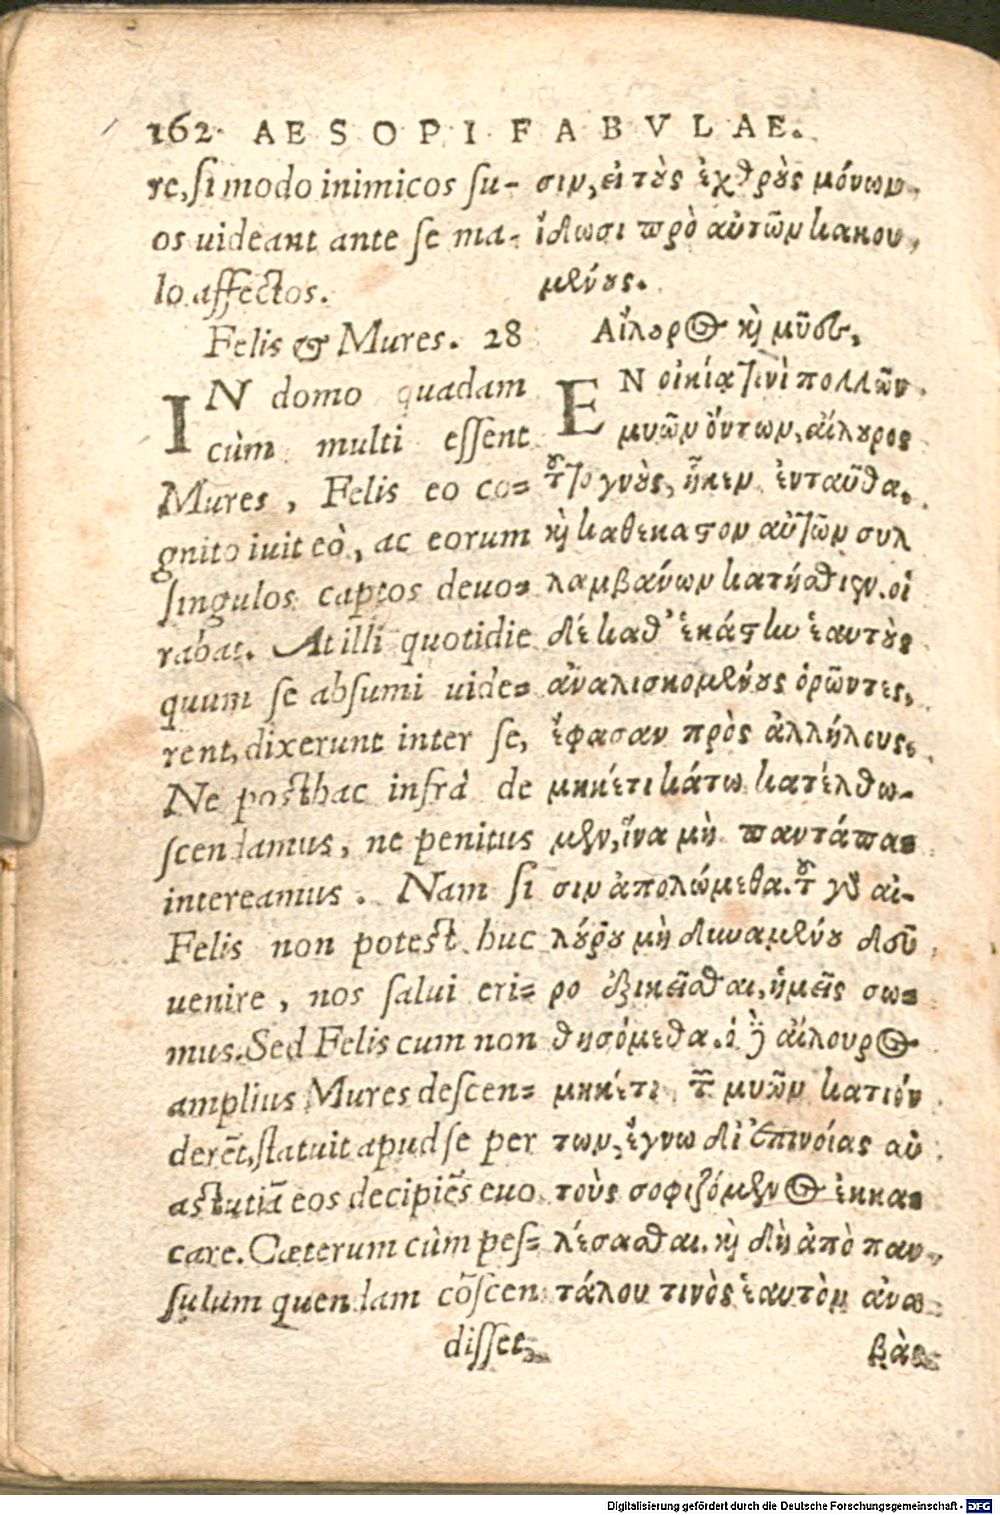 162 AESOPI FABVLAE.
re, si modo inimicos su-
os uideant ante se ma-
lo affectos.
Felis & Mures. 28
IN domo quadam
cùm multi essent
Mures, Felis eo co=
gnito iuit eò, ac eorum
singulos captos deuo=
rabat. At illi quotidie
quum se absumi uide=
rent, dixerunt inter se,
Ne posthac infrà de
scendamus, ne penitus
intereamus. Nam si
Felis non potest huc
uenire, nos salui eri=
mus. Sed Felis cum non
amplius Mures descen=
derēt, statuit apud se per
astutiā eos decipiēs euo
care. Cæterum cùm pes-
sulum quendam cōscen
disset,
σιν, εἰ τοὺς ἐχθροὺς μόνον
ἴδωσι πρὸ αὐτῶν κακου,
μένους.
Αἴλουρος καὶ μῦες,
ΕΝ οἰκίᾳ τινὶ πολλῶν
μυῶν ὄντων, αἴλουρος
τοῦτο γνοὺς, ἧκεν ἐνταῦθα,
καὶ καθέκαστον αὐτῶν συλ
λαμβάνων κατήσθιεν. οἱ
δὲ καθ' ἑκάστην ἑαυτοὺς
ἀναλισκομένους ὁρῶντες,
ἔφασαν πρὸς ἀλλήλους,
μηκέτι κάτω κατέλθω-
μεν, ἵνα μὴ παντάπα=
σιν ἀπολώμεθα. τοῦ γὰρ αἰ-
λούρου μὴ δυναμένου δεῦ
ρο ἐξικεῖσθαι, ἡμεῖς σω=
θησόμεθα. ὁ δὲ αἴλουρος
μηκέτι τῶν μυῶν κατιόν
των, ἔγνω δι' ἐπινοίας αὐ
τοὺς σοφιζόμενος ἐκκα=
λέσασθαι. καὶ δὴ ἀπὸ παν,
τάλου τινὸς ἑαυτὸν ἀνα
βὰς
Digitalisierung gefördert durch die Deutsche Forschungsgemeinschaft - DFG